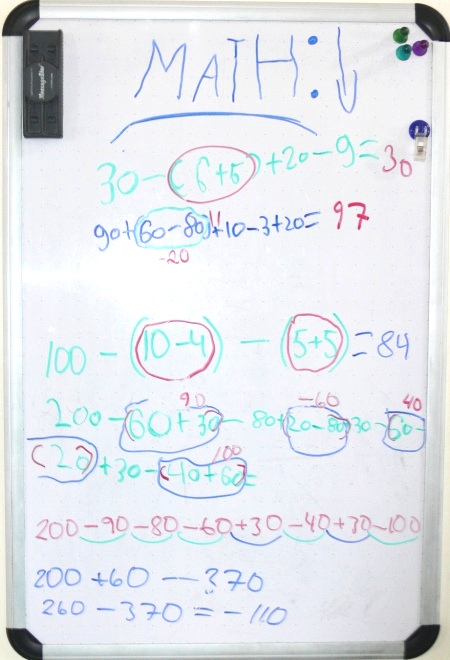 MATH:
30-(6+5)+20-9=30
11
90+(60-80)+10-3+20=97
-20
100-(10-4)-(5+5)=84
90 -60 40
200-(60+30)-80+(20-80)+30-(60-
100
(20)+30-(40+60)=
200-90-80-60+30-40+30-100
200+60-370
260-370=-110